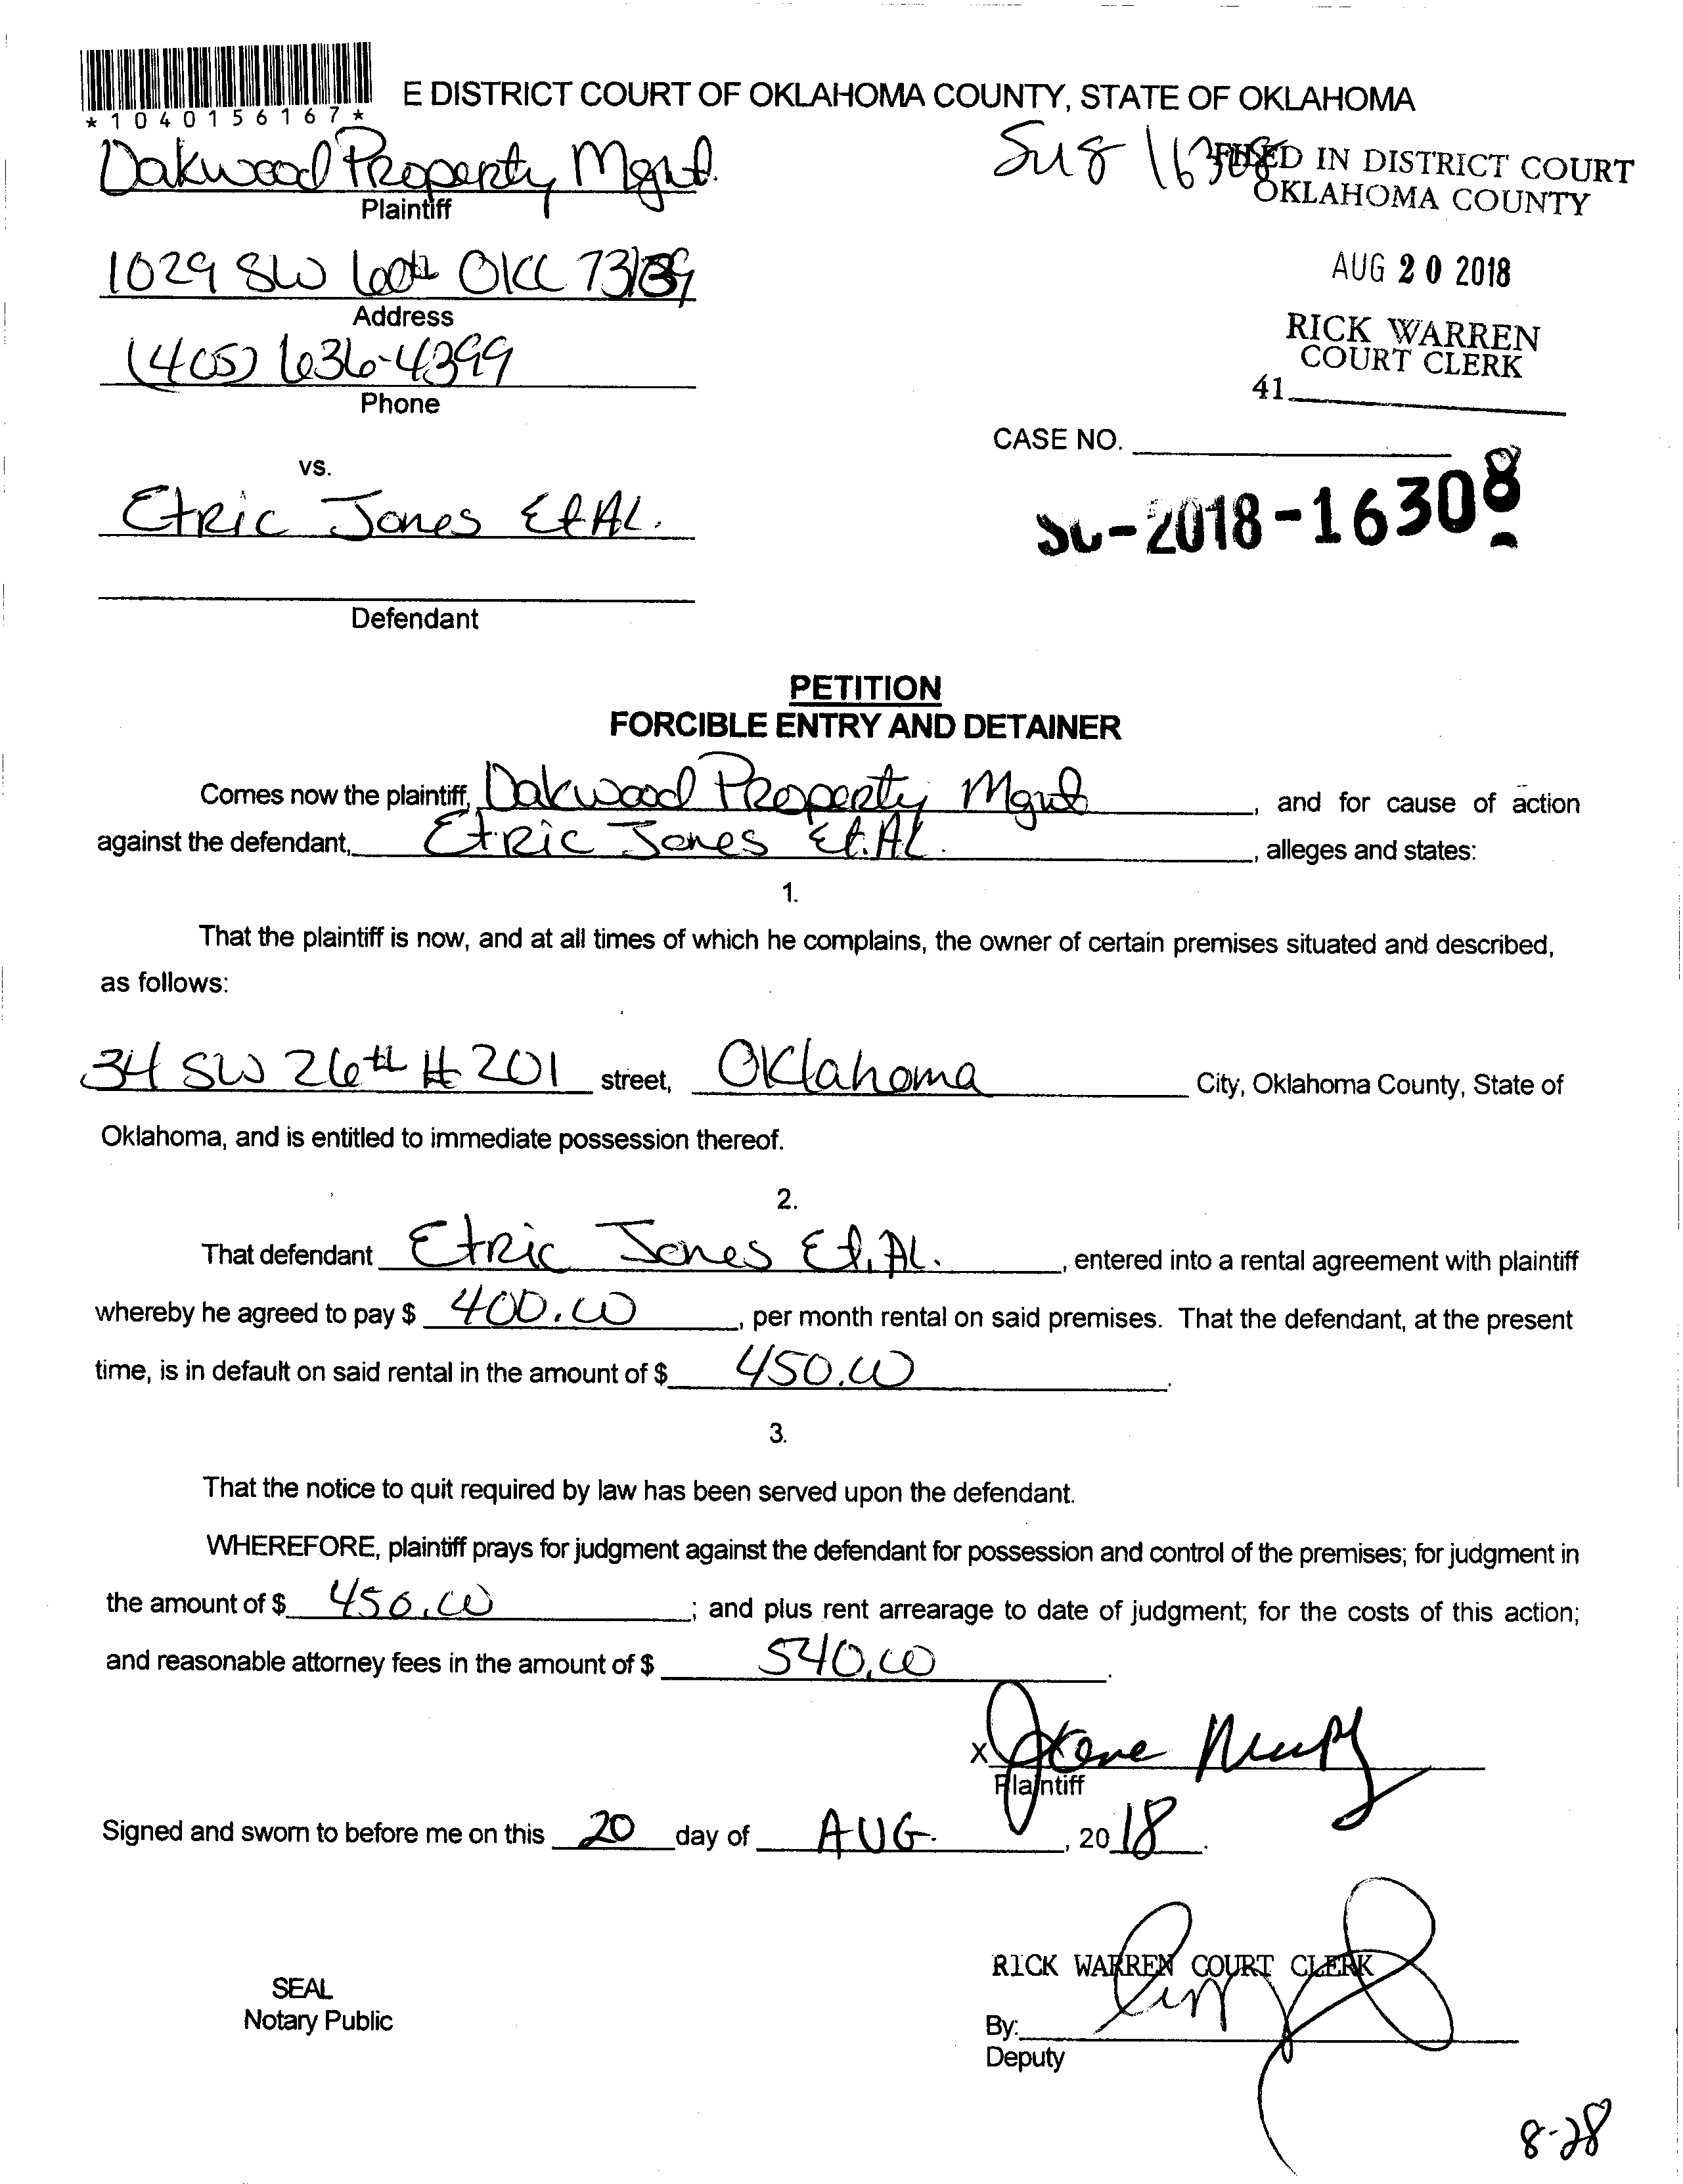 *1040156167*
E DISTRICT COURT OF OKLAHOMA COUNTY, STATE OF OKLAHOMA
Oakwood Property Mgmt.
Plaintiff
FILED IN DISTRICT COURT
OKLAHOMA COUNTY
1029 SW 60th OKC 73139
Address
AUG 20 2018
(405) 636-4399
Phone
RICK WARREN
COURT CLERK
41
CASE NO.
vs.
Etric Jones Et AL.
SC-2018-16308
Defendant
PETITION
FORCIBLE ENTRY AND DETAINER
Comes now the plaintiff, Oakwood Property Mgmt, and for cause of action
against the defendant, Etric Jones Et.AL., alleges and states:
1.
That the plaintiff is now, and at all times of which he complains, the owner of certain premises situated and described,
as follows:
34 SW 26th #201 street, Oklahoma City, Oklahoma County, State of
Oklahoma, and is entitled to immediate possession thereof.
2.
That defendant Etric Jones Et.AL., entered into a rental agreement with plaintiff
whereby he agreed to pay $ 400.00, per month rental on said premises. That the defendant, at the present
time, is in default on said rental in the amount of $ 450.00.
3.
That the notice to quit required by law has been served upon the defendant.
WHEREFORE, plaintiff prays for judgment against the defendant for possession and control of the premises; for judgment in
the amount of $ 450.00; and plus rent arrearage to date of judgment; for the costs of this action;
and reasonable attorney fees in the amount of $ 540.00.
X
Plaintiff
Signed and sworn to before me on this 20 day of AUG., 2018.
RICK WARREN COURT CLERK
SEAL
Notary Public
By:
Deputy
8-28